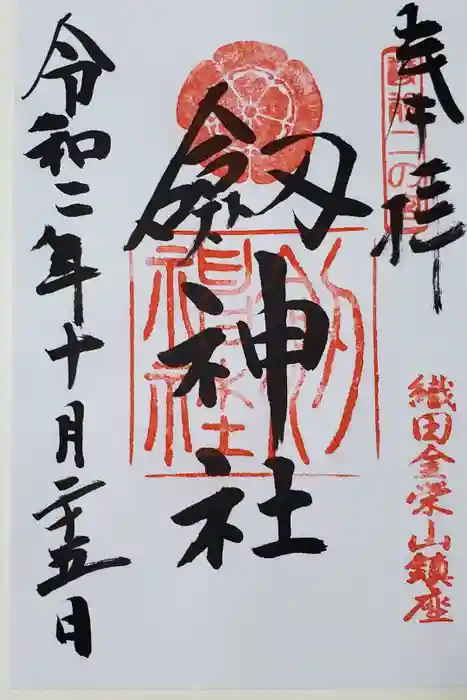 奉拝
越前二の宮
織田金栄山鎮座
劔神社
令和二年十月二十五日